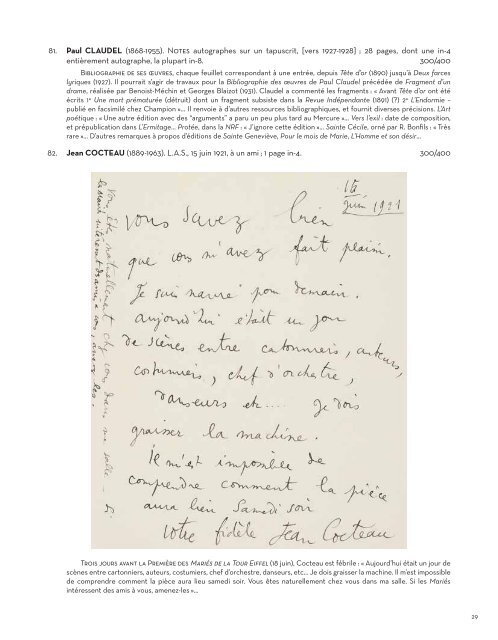 81. Paul CLAUDEL (1868-1955). NOTES autographes sur un tapuscrit, [vers 1927-1928] ; 28 pages, dont une in-4
entièrement autographe, la plupart in-8. 300/400
BIBLIOGRAPHIE DE SES ŒUVRES, chaque feuillet correspondant à une entrée, depuis Tête d'or (1890) jusqu'à Deux farces
lyriques (1927). Il pourrait s'agir de travaux pour la Bibliographie des œuvres de Paul Claudel précédée de Fragment d'un
drame, réalisée par Benoist-Méchin et Georges Blaizot (1931). Claudel a commenté les fragments : « Avant Tête d'or ont été
écrits 1° Une mort prématurée (détruit) dont un fragment subsiste dans la Revue Indépendante (1891) (?) 2° L'Endormie –
publié en facsimilé chez Champion »... Il renvoie à d'autres ressources bibliographiques, et fournit diverses précisions. L'Art
poétique : « Une autre édition avec des "arguments" a paru un peu plus tard au Mercure »... Vers l'exil : date de composition,
et prépublication dans L'Ermitage... Protée, dans la NRF : « J'ignore cette édition »... Sainte Cécile, orné par R. Bonfils : « Très
rare »... D'autres remarques à propos d'éditions de Sainte Geneviève, Pour le mois de Marie, L'Homme et son désir...
82. Jean COCTEAU (1889-1963). L.A.S., 15 juin 1921, à un ami ; 1 page in-4. 300/400
15
juin 1921
vous savez bien
que vous m'avez fait plaisir.
Je suis navré pour demain.
aujourd'hui était un jour
de scènes entre cartonniers, auteurs,
costumiers, chef d'orchestre,
danseurs etc.... Je dois
graisser la machine.
Il m'est impossible de
comprendre comment la pièce
aura lieu Samedi soir
Votre fidèle Jean Cocteau
Vous êtes naturellement chez vous dans ma salle – Si
les Mariés intéressent des amis à vous, amenez-les.
TROIS JOURS AVANT LA PREMIÈRE DES MARIÉS DE LA TOUR EIFFEL (18 juin), Cocteau est fébrile : « Aujourd'hui était un jour de
scènes entre cartonniers, auteurs, costumiers, chef d'orchestre, danseurs, etc... Je dois graisser la machine. Il m'est impossible
de comprendre comment la pièce aura lieu samedi soir. Vous êtes naturellement chez vous dans ma salle. Si les Mariés
intéressent des amis à vous, amenez-les »...
29